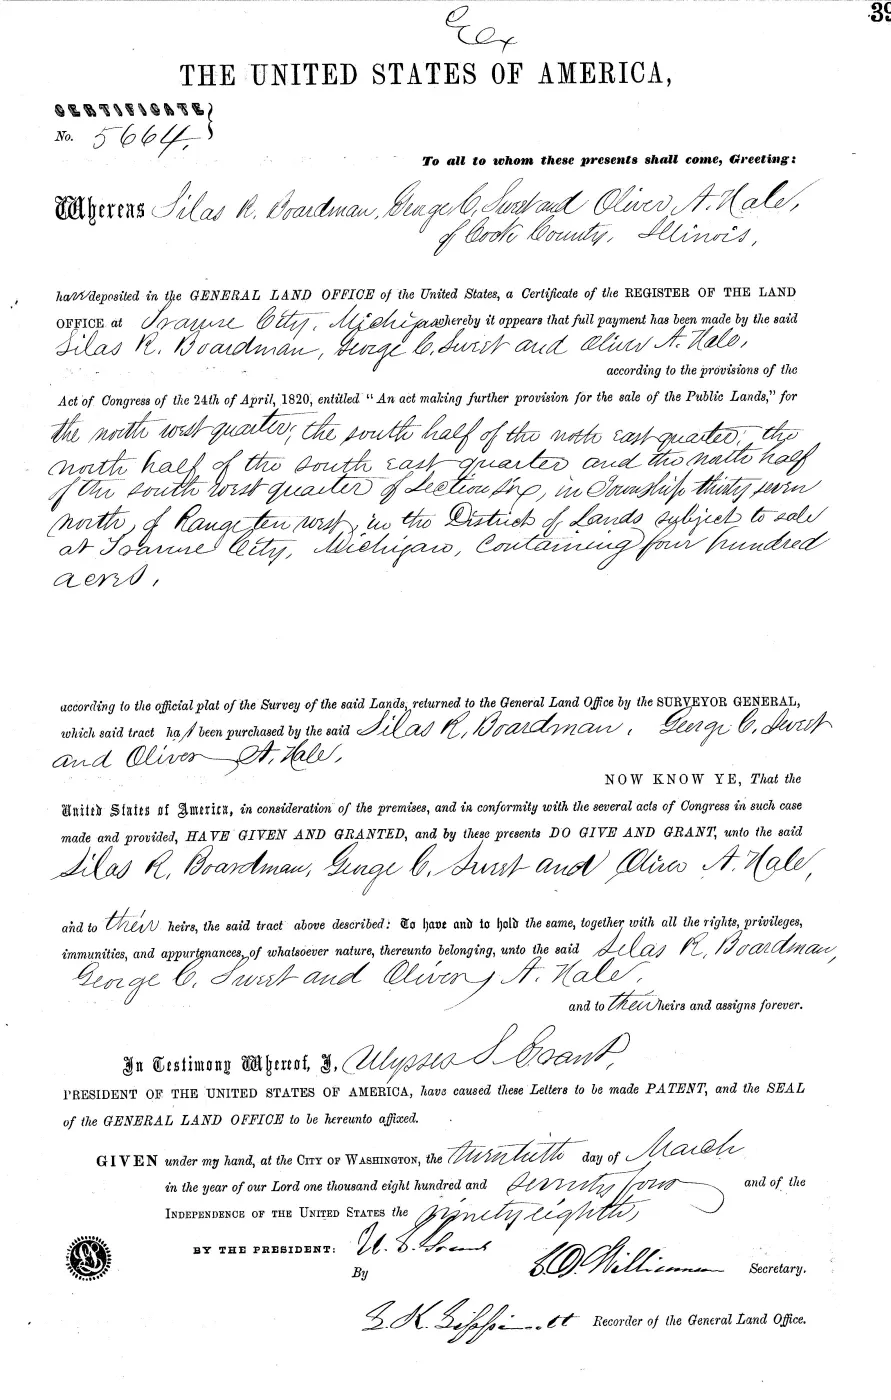 Ex
39
THE UNITED STATES OF AMERICA,
CERTIFICATE
No. 5664.
To all to whom these presents shall come, Greeting:
Whereas Silas R. Boardman, George C. Sweet and Oliver A. Hale,
of Cook County, Illinois,
have deposited in the GENERAL LAND OFFICE of the United States, a Certificate of the REGISTER OF THE LAND
OFFICE at Traverse City, Michigan whereby it appears that full payment has been made by the said
Silas R. Boardman, George C. Sweet and Oliver A. Hale,
according to the provisions of the
Act of Congress of the 24th of April, 1820, entitled "An act making further provision for the sale of the Public Lands," for
the north west quarter, the south half of the north east quarter, the
north half of the south east quarter and the north half
of the south west quarter of Section six, in Township thirty seven
north, of Range ten west, in the District of Lands subject to sale
at Traverse City, Michigan, containing four hundred
acres,
according to the official plat of the Survey of the said Lands, returned to the General Land Office by the SURVEYOR GENERAL,
which said tract has been purchased by the said Silas R. Boardman, George C. Sweet
and Oliver A. Hale,
NOW KNOW YE, That the
United States of America, in consideration of the premises, and in conformity with the several acts of Congress in such case
made and provided, HAVE GIVEN AND GRANTED, and by these presents DO GIVE AND GRANT, unto the said
Silas R. Boardman, George C. Sweet and Oliver A. Hale,
and to their heirs, the said tract above described: To have and to hold the same, together with all the rights, privileges,
immunities, and appurtenances, of whatsoever nature, thereunto belonging, unto the said Silas R. Boardman,
George C. Sweet and Oliver A. Hale,
and to their heirs and assigns forever.
In Testimony Whereof, I, Ulysses S. Grant,
PRESIDENT OF THE UNITED STATES OF AMERICA, have caused these Letters to be made PATENT, and the SEAL
of the GENERAL LAND OFFICE to be hereunto affixed.
GIVEN under my hand, at the CITY OF WASHINGTON, the twentieth day of March
in the year of our Lord one thousand eight hundred and seventy four and of the
INDEPENDENCE OF THE UNITED STATES the ninety eighth,
BY THE PRESIDENT: U. S. Grant
By S. D. Williamson Secretary.
LS
Recorder of the General Land Office.